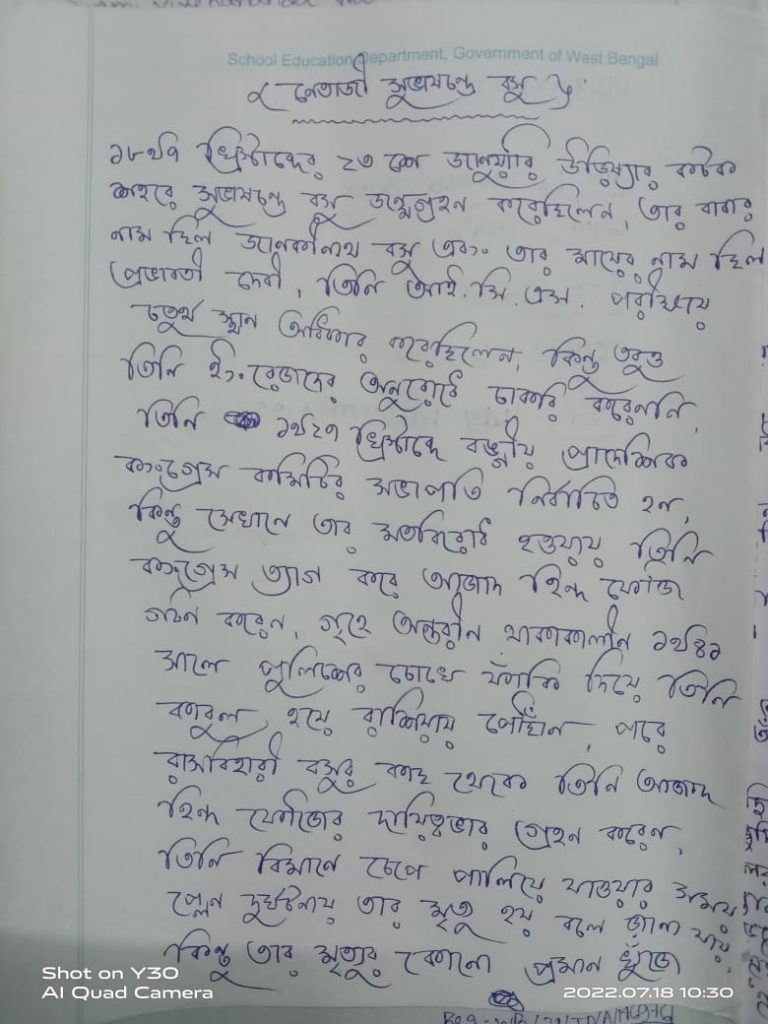 School Education Department, Government of West Bengal
নেতাজী সুভাষচন্দ্র বসু
১৮৯৭ খ্রিস্টাব্দের ২৩ শে জানুয়ারি উড়িষ্যার কটক
শহরে সুভাষচন্দ্র বসু জন্মেগ্রহন করেছিলেন, তার বাবার
নাম ছিল জানকীনাথ বসু এবং তার মায়ের নাম ছিল
প্রভাবতী দেবী, তিনি আই.সি.এস. পরীক্ষায়
চতুর্থ স্থান অধিকার করেছিলেন, কিন্তু তবুও
তিনি ইংরেজদের অনুরোধে চাকরি করেননি,
তিনি ১৯২৭ খ্রিস্টাব্দে বঙ্গীয় প্রাদেশিক
কংগ্রেস কমিটির সভাপতি নির্বাচিত হন,
কিন্তু সেখানে তার মতবিরোধ হওয়ায় তিনি
কংগ্রেস ত্যাগ করে আজাদ হিন্দ ফৌজ
গঠন করেন, গৃহে অন্তরীন থাকাকালীন ১৯৪১
সালে পুলিশের চোখে ফাঁকি দিয়ে তিনি
কাবুল হয়ে রাশিয়ায় পৌঁছান, পরে
রাসবিহারী বসুর কাছ থেকে তিনি আজাদ
হিন্দ ফৌজের দায়িত্বভার গ্রহন করেন,
তিনি বিমানে চেপে পালিয়ে যাওয়ার সময়
প্লেন দুর্ঘটনায় তার মৃত্যু হয় বলে জানা যায়,
কিন্তু তার মৃত্যুর কোনো প্রমান খুঁজে
Shot on Y30
AI Quad Camera
2022.07.18 10:30